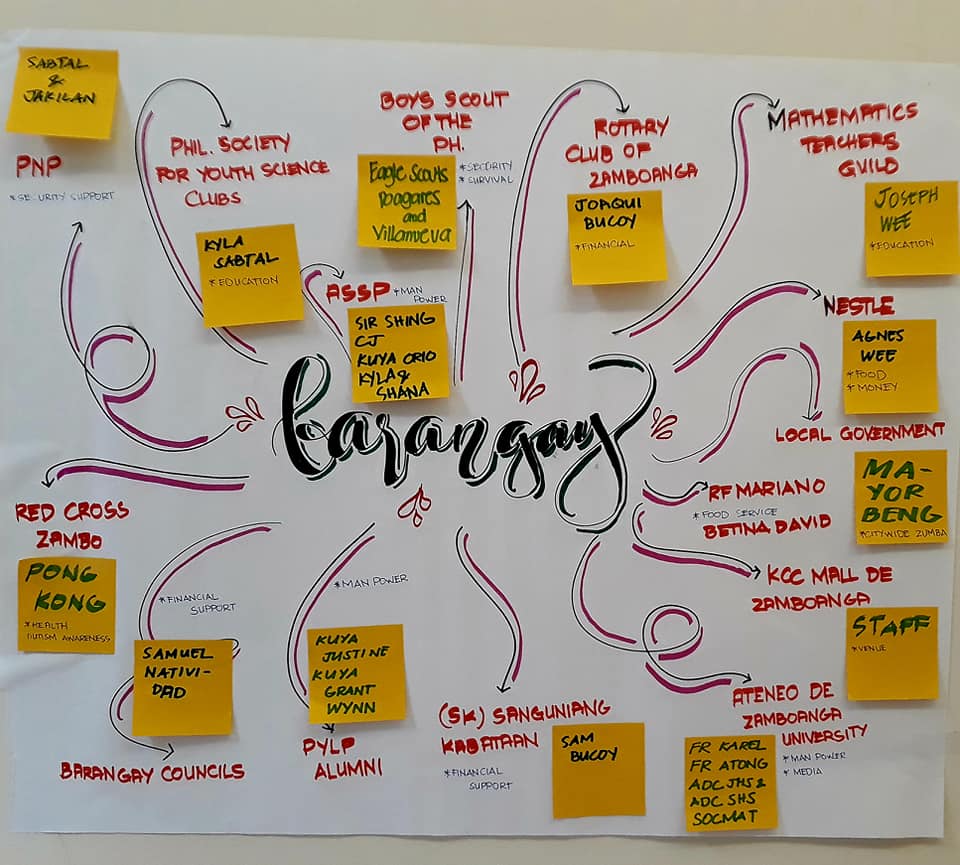 SABTAL
&
JAKILAN
PNP
*SECURITY SUPPORT
PHIL. SOCIETY
FOR YOUTH SCIENCE
CLUBS
KYLA
SABTAL
*EDUCATION
BOYS SCOUT
OF THE
PH.
Eagle Scouts
and
Villanueva
*SECURITY
*SURVIVAL
ASSP
*MAN
POWER
SIR SHING
CJ
KUYA ORIO
KYLA &
SHANA
ROTARY
CLUB OF
ZAMBOANGA
JOAQUI
BUCOY
*FINANCIAL
MATHEMATICS
TEACHERS
GUILD
JOSEPH
WEE
*EDUCATION
NESTLE
AGNES
WEE
*FOOD
*MONEY
LOCAL GOVERNMENT
MA-
YOR
BENG
*CITYWIDE ZUMBA
barangay
RF MARIANO
*FOOD SERVICE
BETINA DAVID
KCC MALL DE
ZAMBOANGA
STAFF
*VENUE
RED CROSS
ZAMBO
PONG
KONG
*HEALTH
AUTISM AWARENESS
*FINANCIAL
SUPPORT
SAMUEL
NATIVI-
DAD
BARANGAY COUNCILS
*MAN POWER
KUYA
JUSTINE
KUYA
GRANT
WYNN
PYLP
ALUMNI
(SK) SANGUNIANG
KABATAAN
*FINANCIAL
SUPPORT
SAM
BUCOY
ATENEO DE
ZAMBOANGA
UNIVERSITY
*MAN POWER
*MEDIA
FR KAREL
FR ATONG
ADC JHS &
ADC SHS
SOCMAT